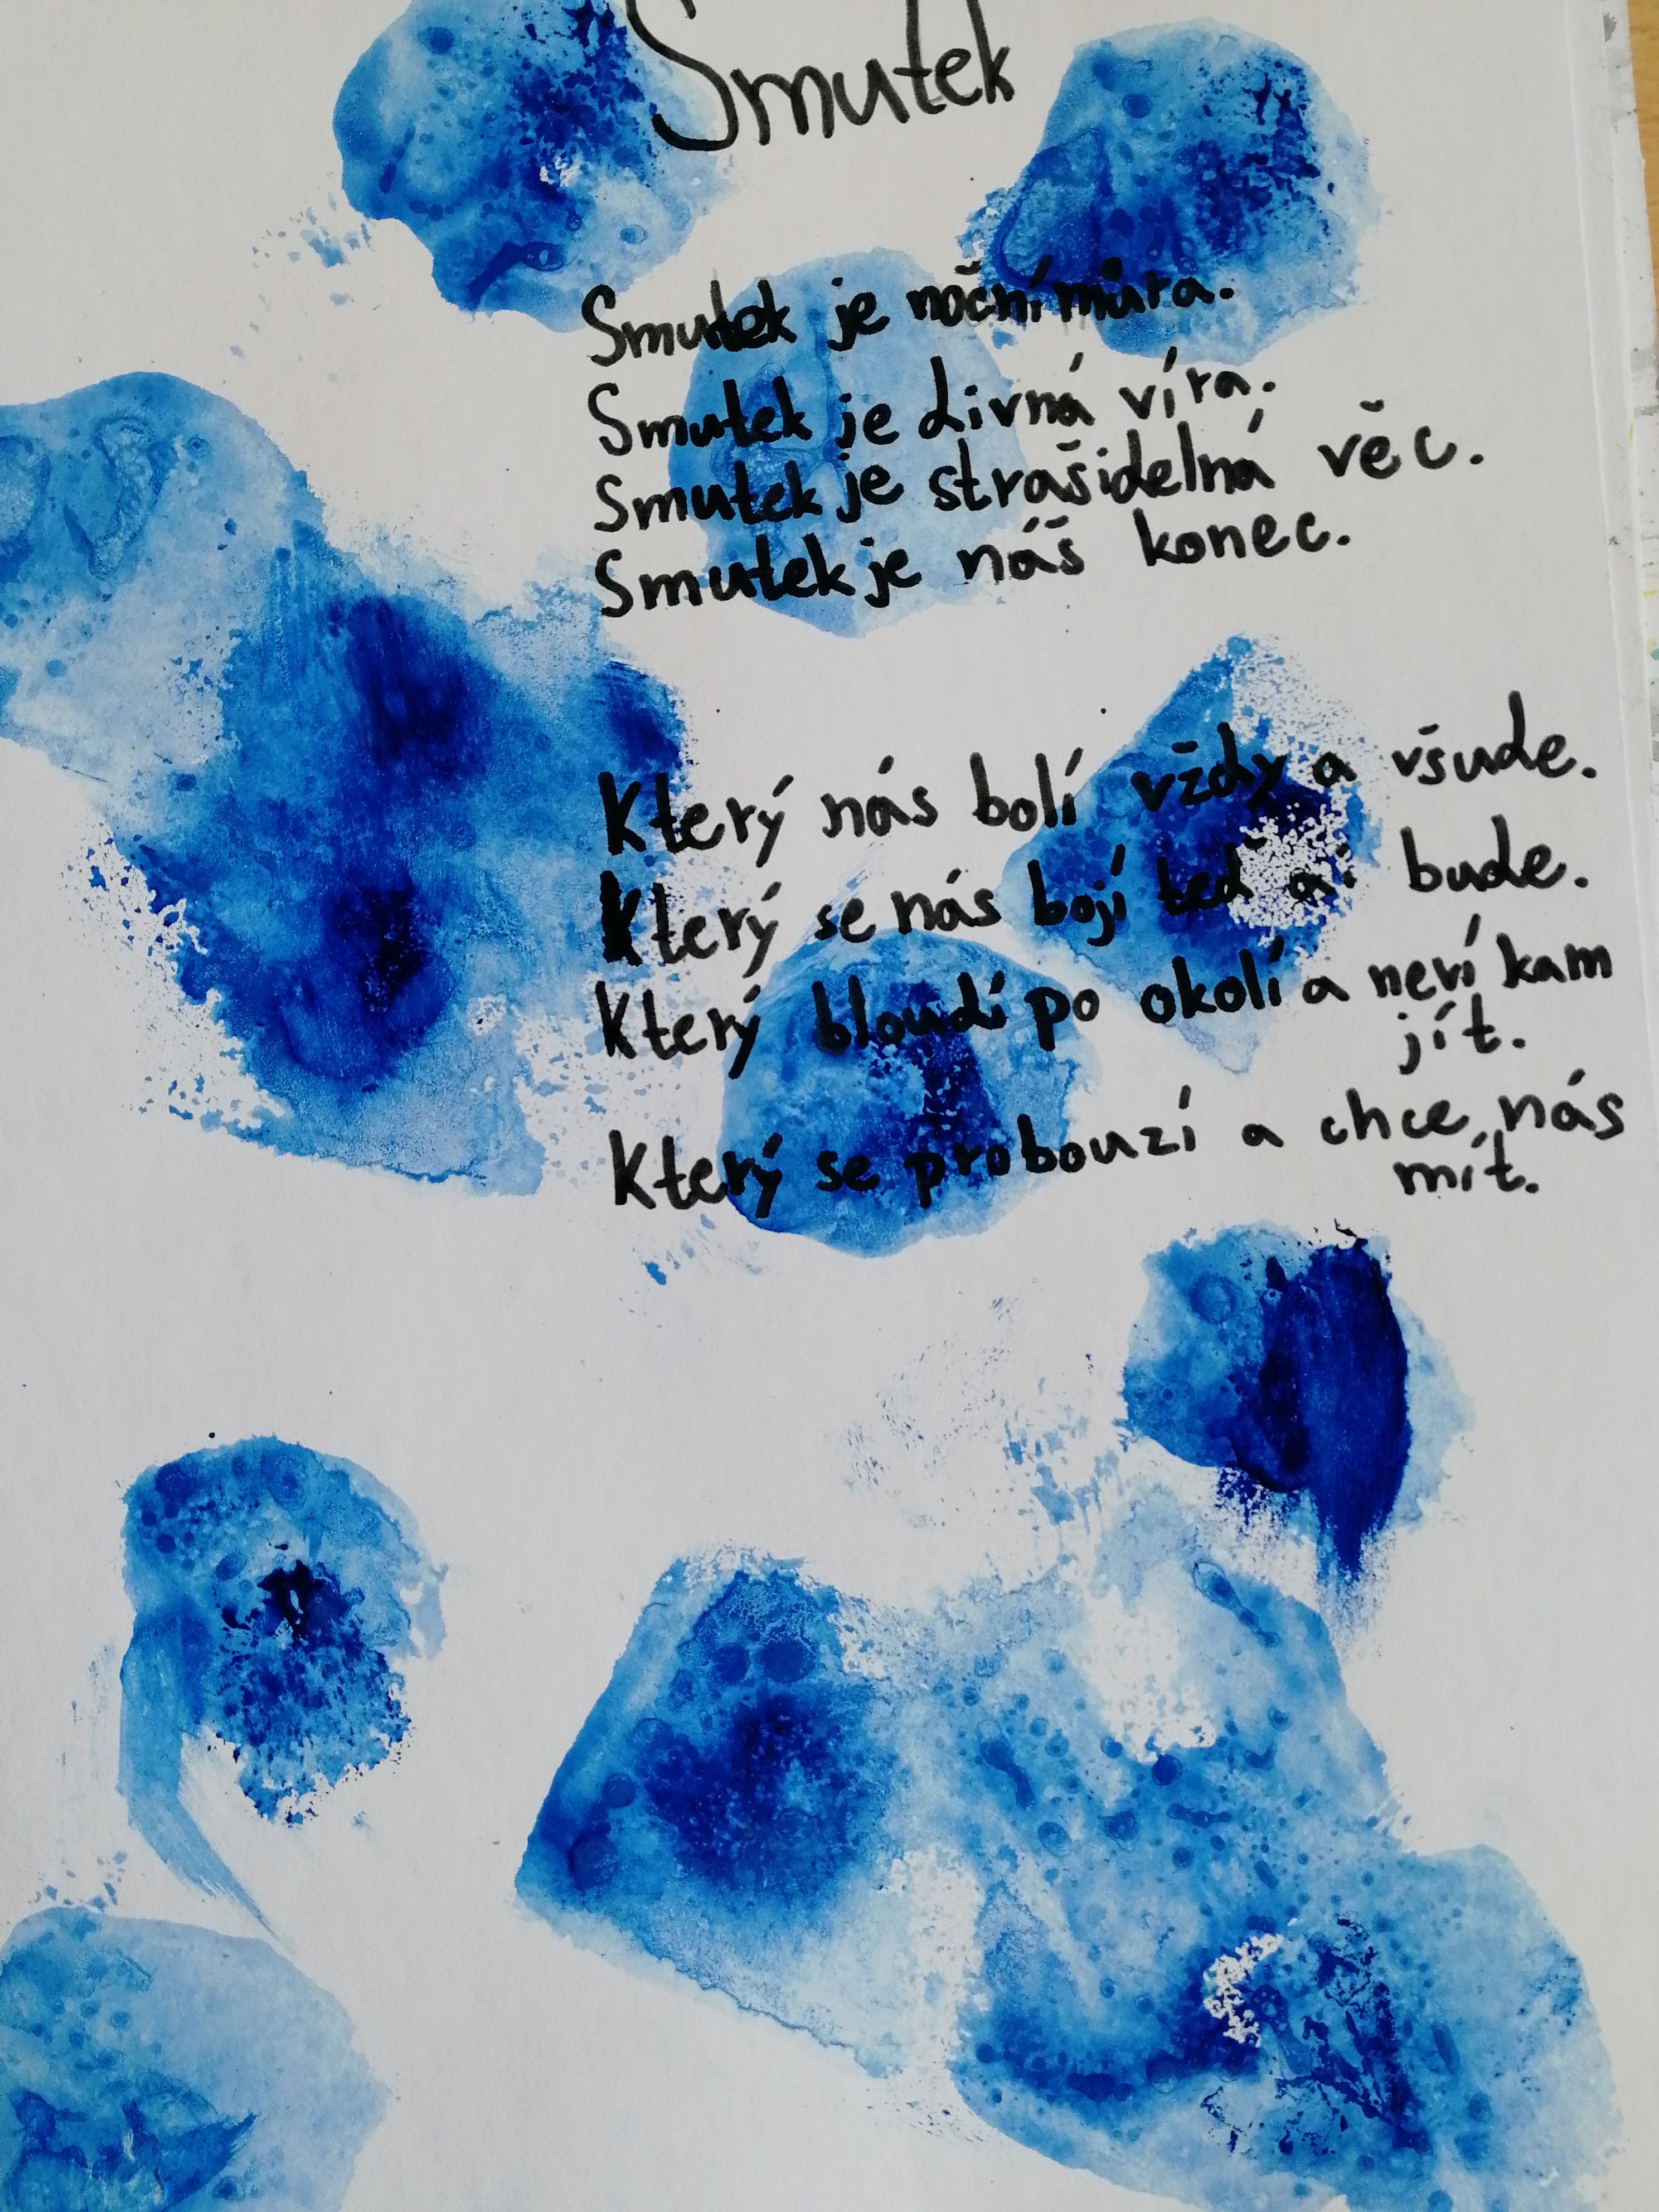 Smutek
Smutek je noční můra.
Smutek je divná víra.
Smutek je strašidelná věc.
Smutek je náš konec.
Který nás bolí vždy a všude.
Který se nás bojí teď ať bude.
Který bloudí po okolí a neví kam
jít.
Který se probouzí a chce nás
mít.